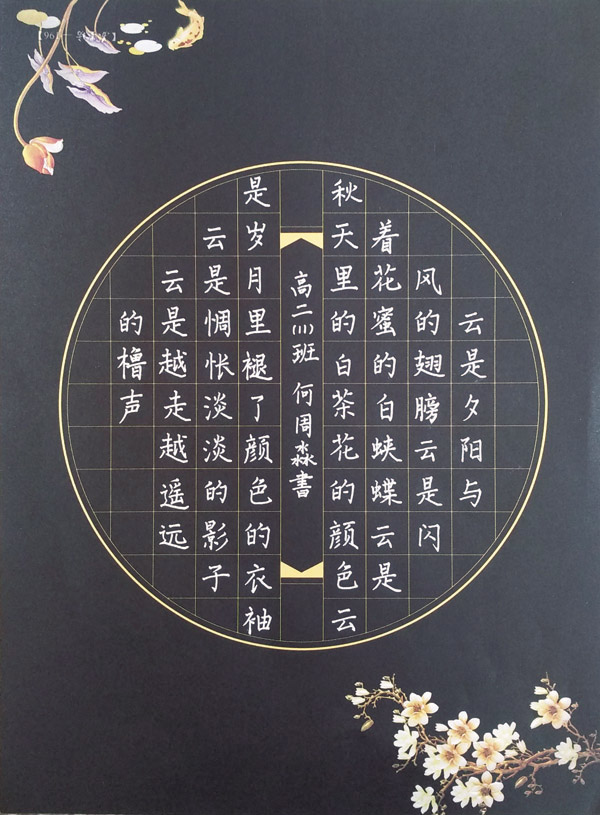 云是夕阳与
风的翅膀云是闪
着花蜜的白蛱蝶云是
秋天里的白茶花的颜色云
是岁月里褪了颜色的衣袖
云是惆怅淡淡的影子
云是越走越遥远
的橹声
高二(11)班 何周淼書